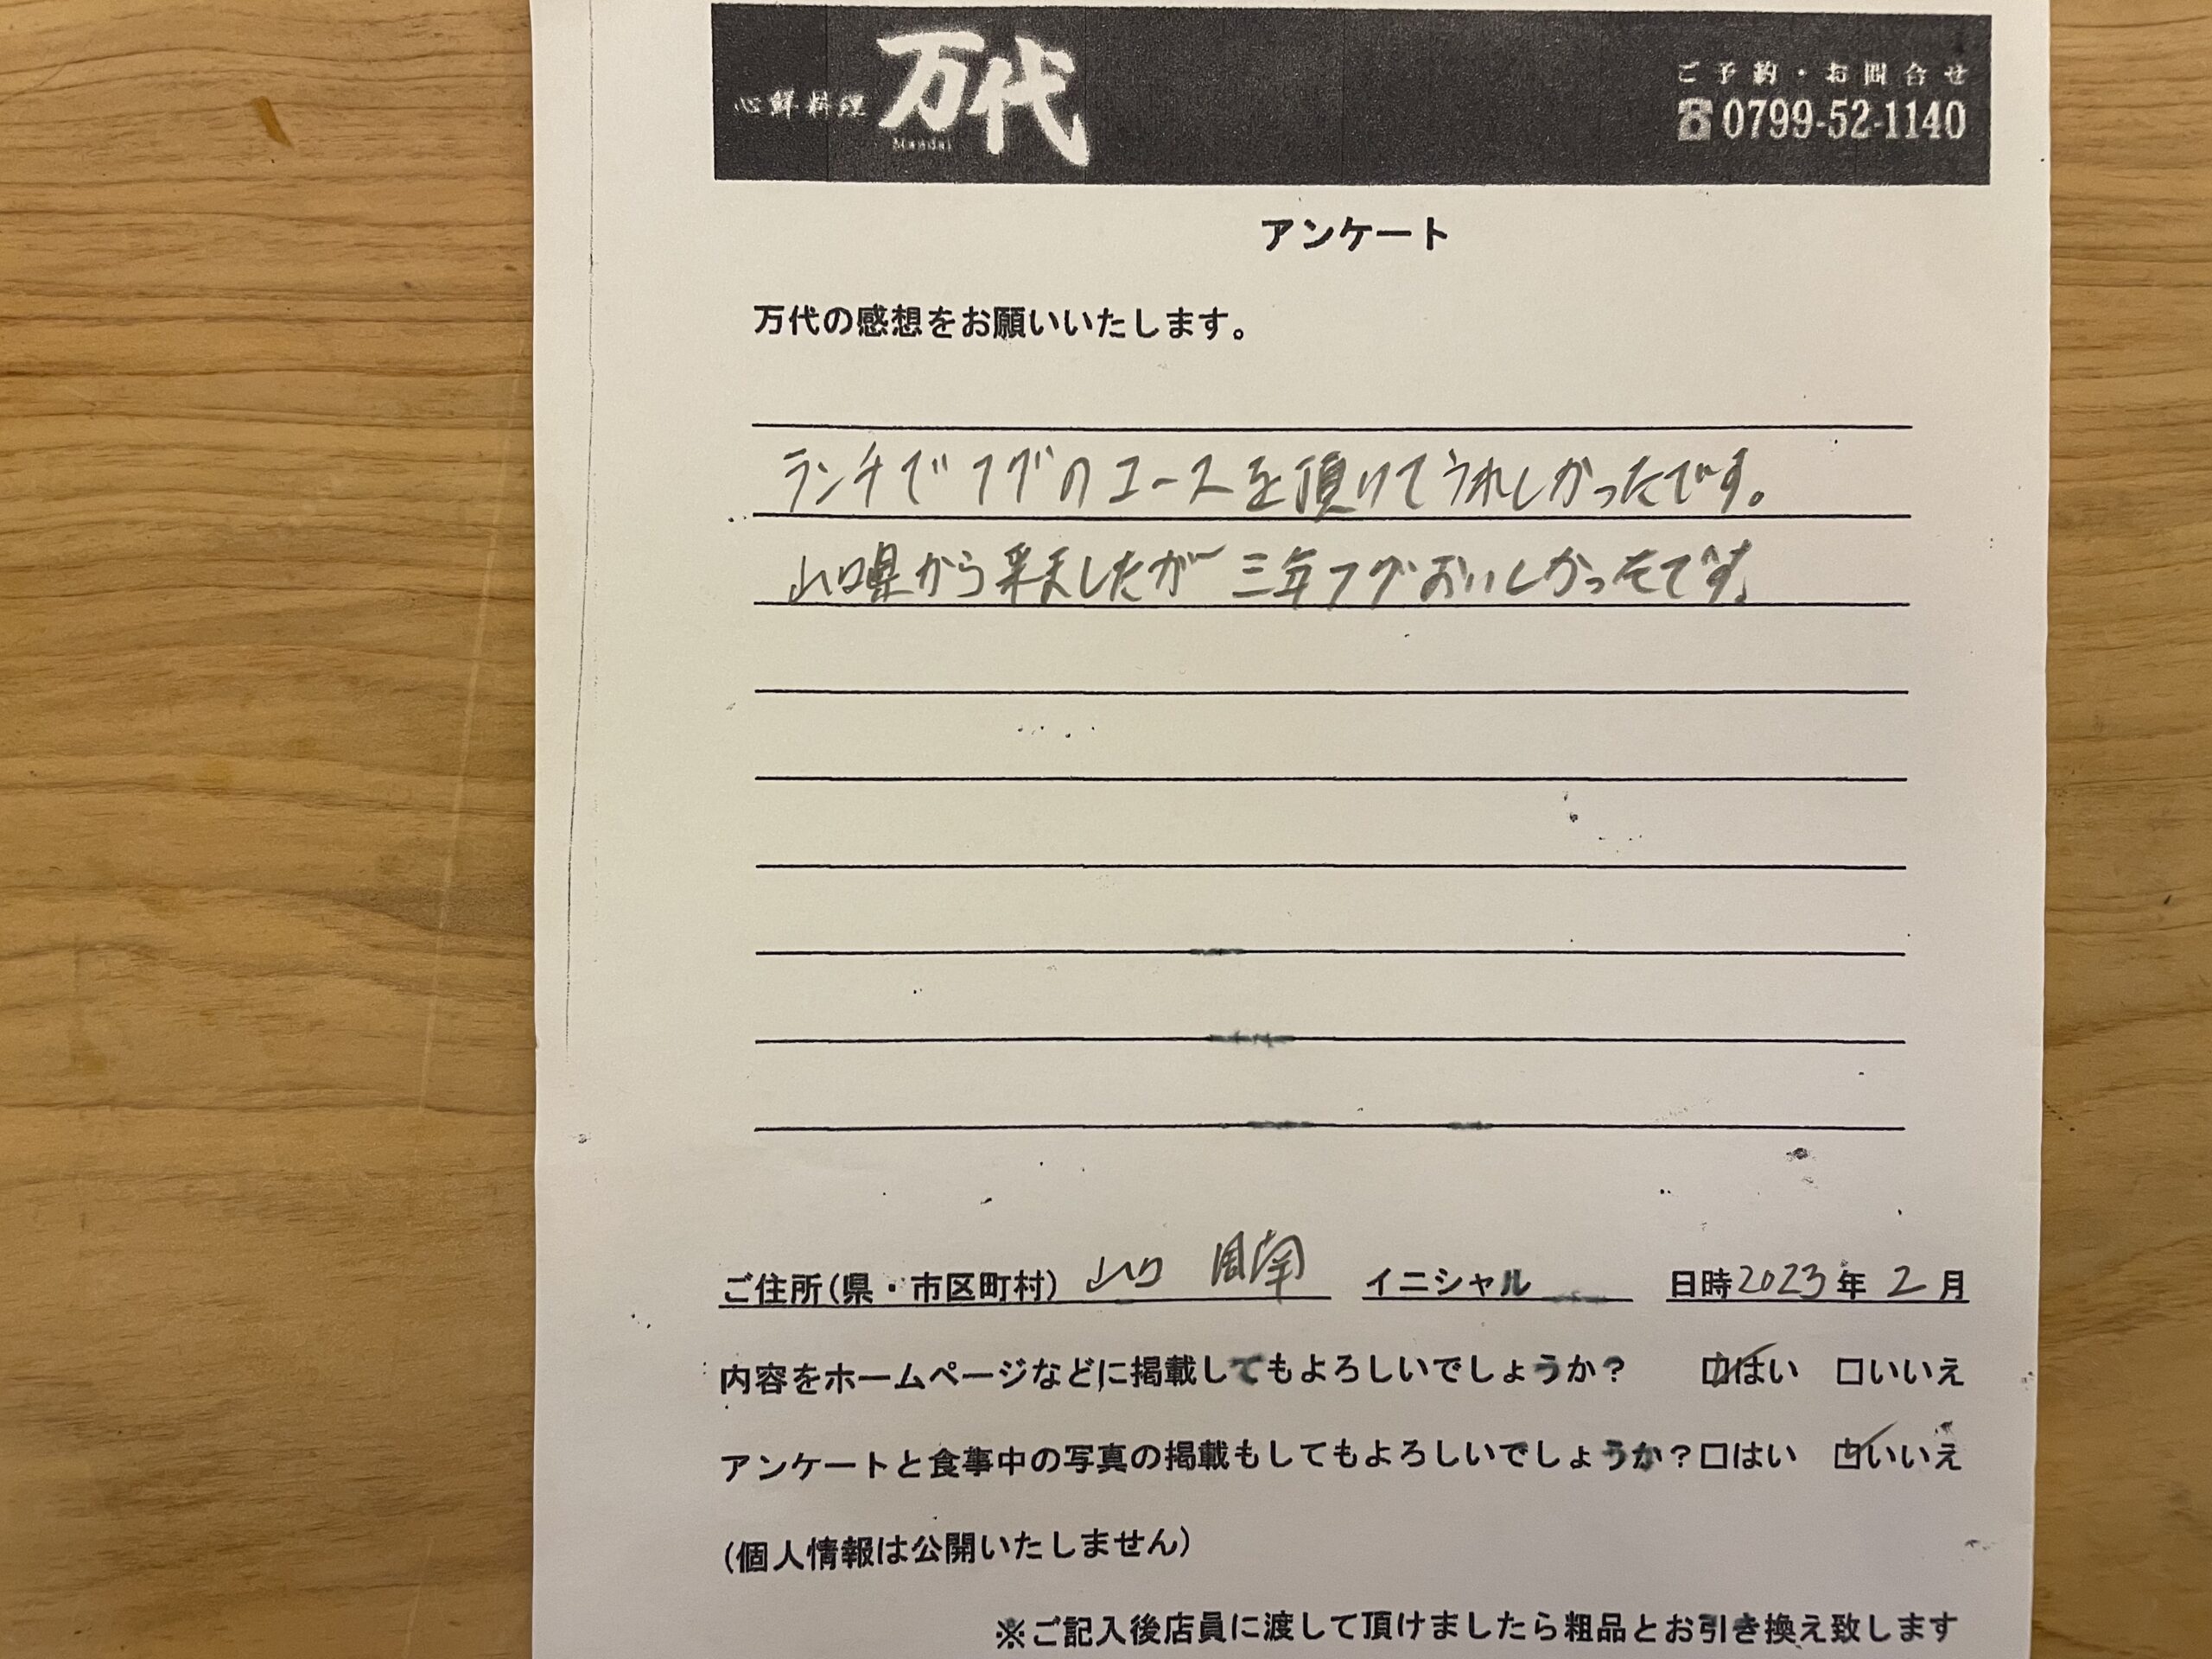 心鮮料理 万代 Mandai
ご予約・お問合せ
☎0799-52-1140
アンケート
万代の感想をお願いいたします。
ランチでフグのコースを頂けてうれしかったです。
山口県から来ましたが三年フグおいしかったです。
ご住所(県・市区町村) 山口 周南 イニシャル 日時2023年2月
内容をホームページなどに掲載してもよろしいでしょうか? □はい □いいえ
アンケートと食事中の写真の掲載もしてもよろしいでしょうか?□はい □いいえ
(個人情報は公開いたしません)
※ご記入後店員に渡して頂けましたら粗品とお引き換え致します